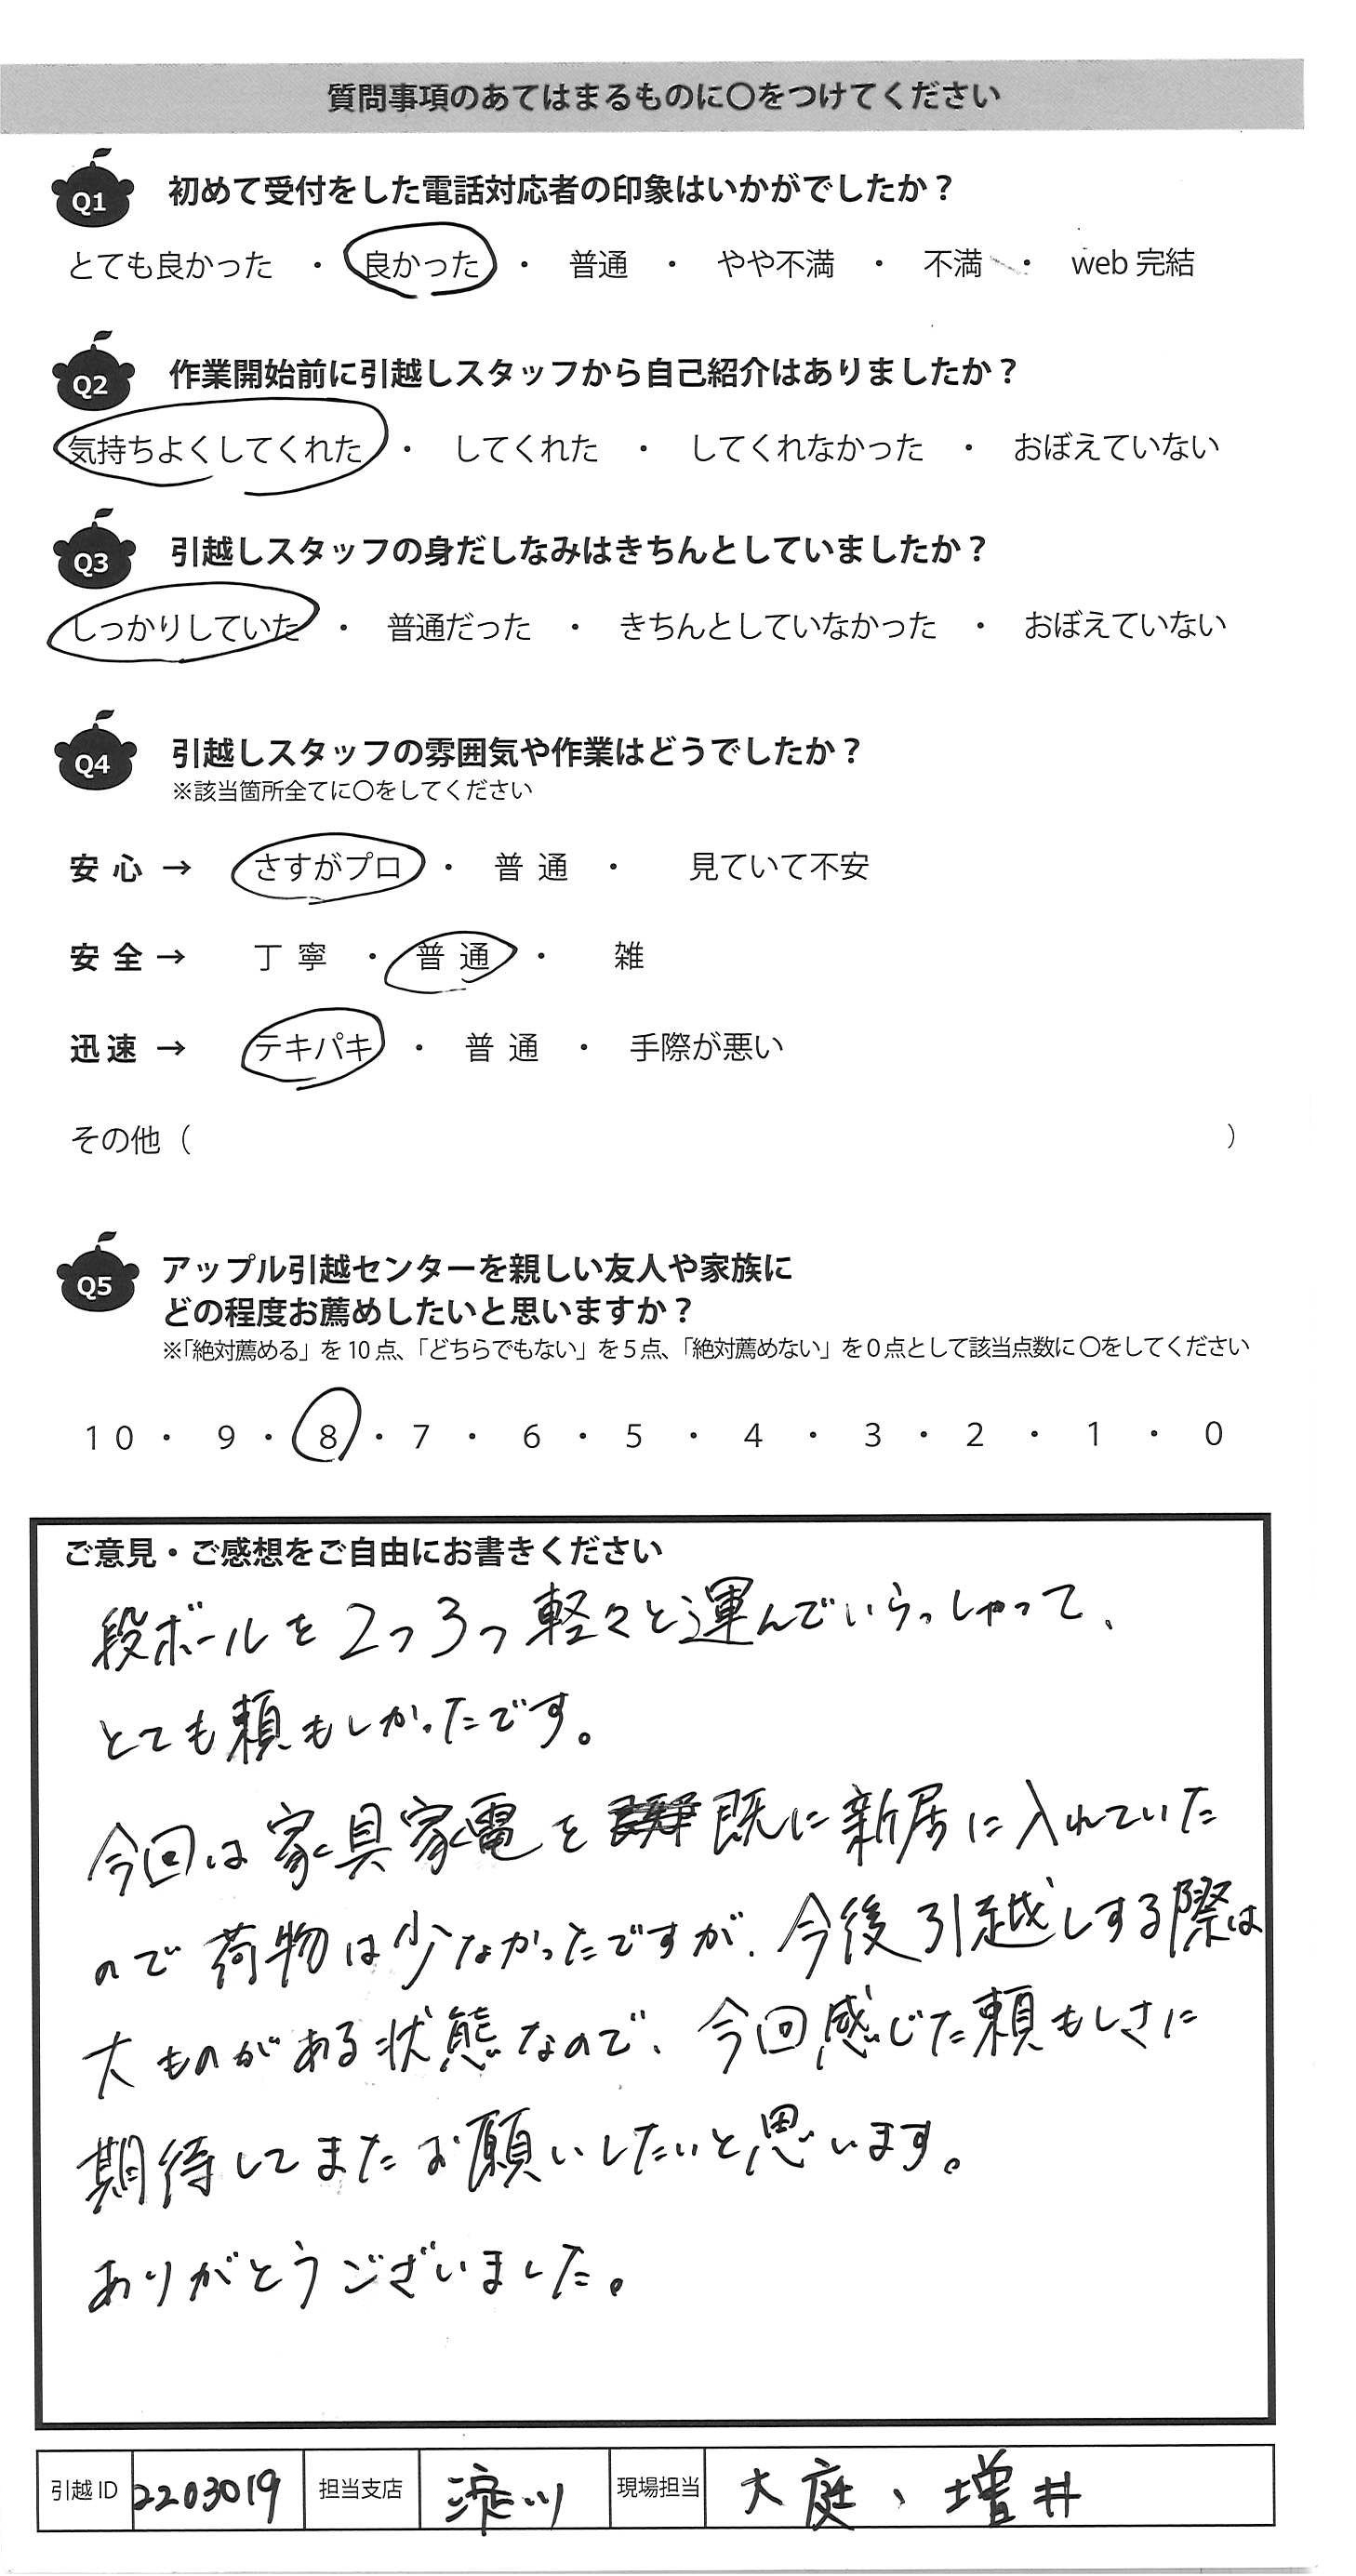 質問事項のあてはまるものに○をつけてください
Q1 初めて受付をした電話対応者の印象はいかがでしたか？
とても良かった ・ 良かった ・ 普通 ・ やや不満 ・ 不満 ・ web 完結
Q2 作業開始前に引越しスタッフから自己紹介はありましたか？
気持ちよくしてくれた ・ してくれた ・ してくれなかった ・ おぼえていない
Q3 引越しスタッフの身だしなみはきちんとしていましたか？
しっかりしていた ・ 普通だった ・ きちんとしていなかった ・ おぼえていない
Q4 引越しスタッフの雰囲気や作業はどうでしたか？
※該当箇所全てに○をしてください
安心 → さすがプロ ・ 普通 ・ 見ていて不安
安全 → 丁寧 ・ 普通 ・ 雑
迅速 → テキパキ ・ 普通 ・ 手際が悪い
その他（ ）
Q5 アップル引越センターを親しい友人や家族に
どの程度お薦めしたいと思いますか？
※「絶対薦める」を10点、「どちらでもない」を5点、「絶対薦めない」を0点として該当点数に○をしてください
10 ・ 9 ・ 8 ・ 7 ・ 6 ・ 5 ・ 4 ・ 3 ・ 2 ・ 1 ・ 0
ご意見・ご感想をご自由にお書きください
段ボールを2つ3つ軽々と運んでいらっしゃって、
とても頼もしかったです。
今回は家具家電を既に新居に入れていた
ので荷物は少なかったですが、今後引越しする際は
大ものがある状態なので、今回感じた頼もしさに
期待してまたお願いしたいと思います。
ありがとうございました。
引越ID 2203019 担当支店 淀川 現場担当 大庭、増井